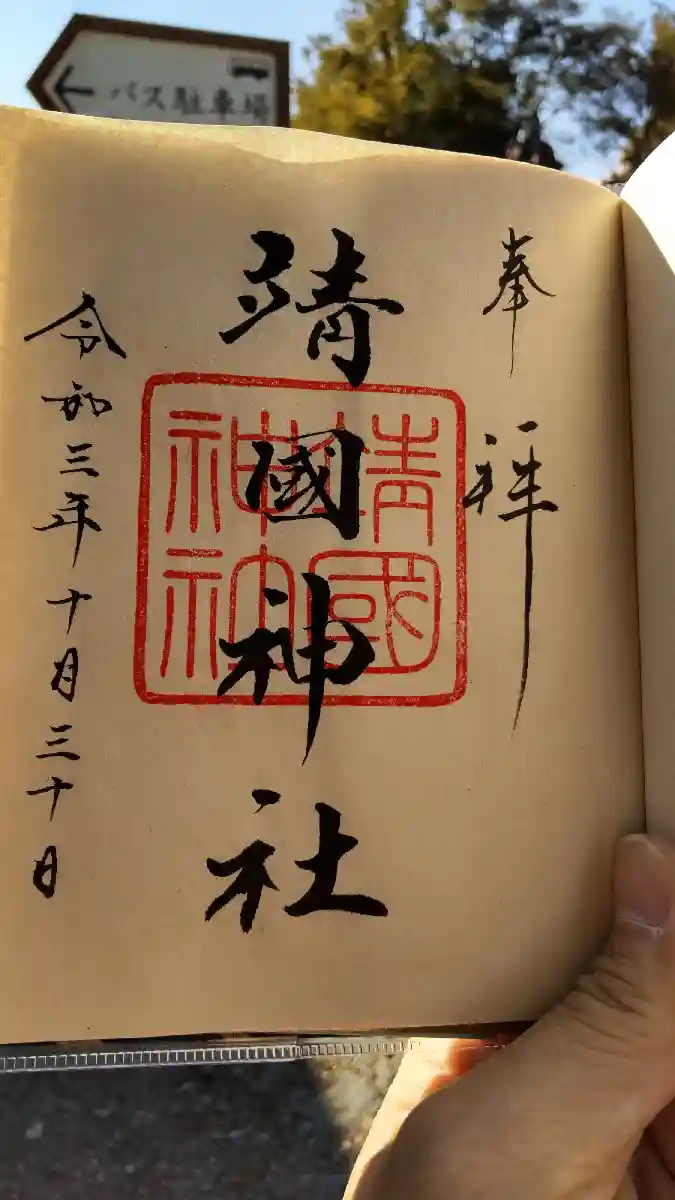 バス駐車場
奉拝
靖國神社
靖國神社
令和三年十月三十日